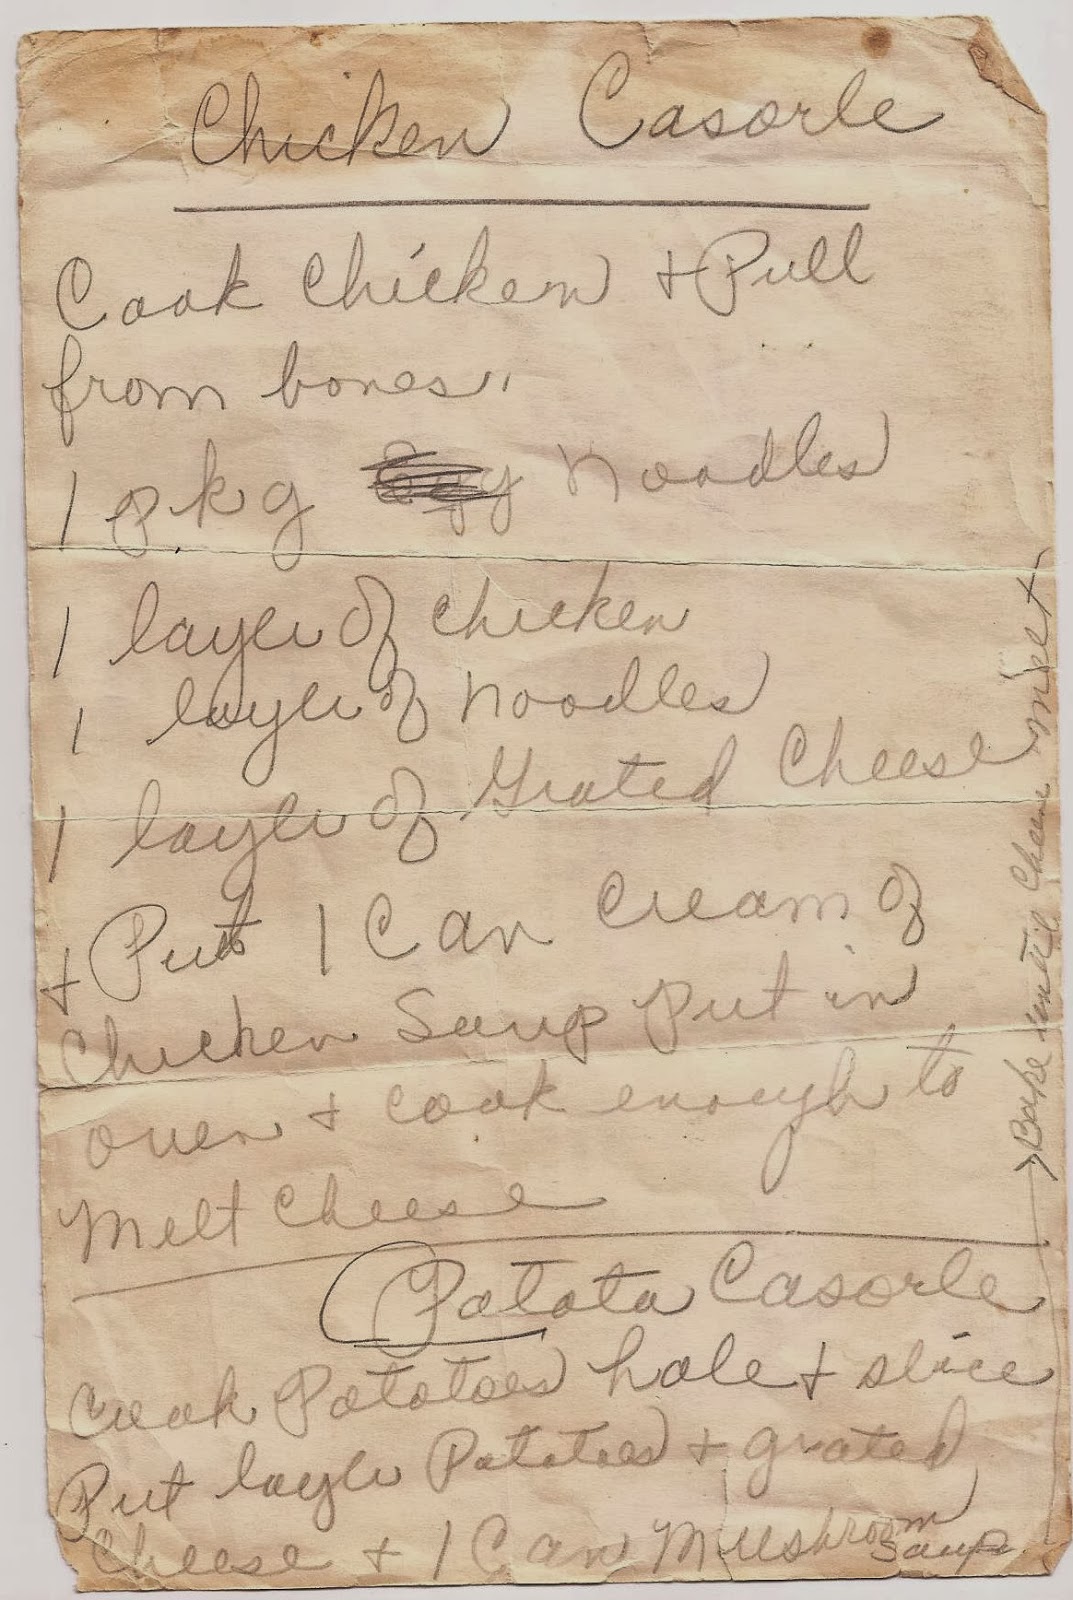 Chicken Casorle
Cook Chicken + Pull
from bones.
1 pkg Noodles
1 layer of chicken
1 layer of Noodles
1 layer of Grated Cheese
+ Put 1 Can Cream of
Chicken Soup Put in
oven + cook enough to
Melt Cheese
Potato Casorle
Cook Potatoes hole + slice
Put layer Potatoes + grated
Cheese + 1 Can Mushroom
Soup.
Bake until Cheese melt